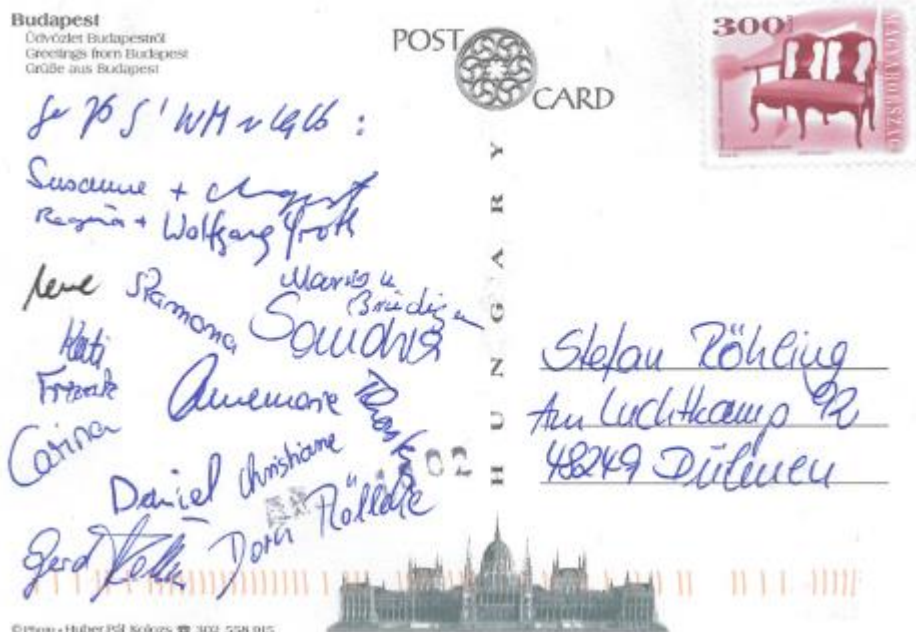 Budapest
Üdvözlet Budapestről
Greetings from Budapest
Grüße aus Budapest
POST
CARD
300
MAGYARORSZÁG
HUNGARY
Susanne + August
Regina + Wolfgang
Ramona
Sandra
Kati
Frank
Annemarie
Carina
Daniel Christiane
Gerd
Doris
02
Stefan Röhling
Am Luchtkamp 92
48249 Dülmen
© Photo • Huber Pál Kolozs ☎ 302 558 915